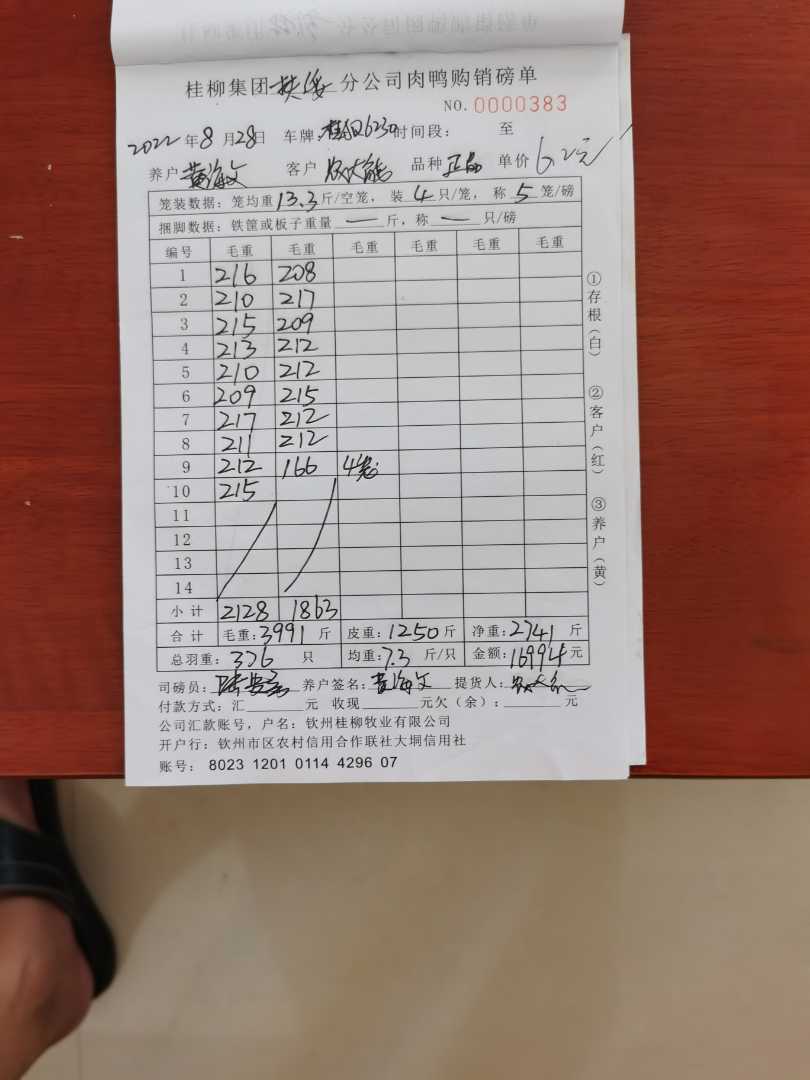 桂柳集团扶绥分公司肉鸭购销磅单
NO.0000383
2022年8月28日 车牌: 6230 时间段: 至
养户 黄海文 客户 品种 正品 单价 6.2元
笼装数据: 笼均重13.3斤/空笼, 装4只/笼, 称5笼/磅
捆脚数据: 铁筐或板子重量 — 斤, 称 — 只/磅
编号 毛重 毛重 毛重 毛重 毛重 毛重
1 216 208
2 210 217
3 215 209
4 213 212
5 210 212
6 209 215
7 217 212
8 211 212
9 212 166 4笼
10 215
11
12
13
14
小计 2128 1863
合计 毛重:3991斤 皮重:1250斤 净重:2741斤
总羽重: 376 只 均重:7.3斤/只 金额:16994元
司磅员: 养户签名: 黄海文 提货人:
付款方式: 汇 元 收现 元欠(余): 元
公司汇款账号, 户名: 钦州桂柳牧业有限公司
开户行: 钦州市区农村信用合作联社大垌信用社
账号: 8023 1201 0114 4296 07
①存根(白) ②客户(红) ③养户(黄)